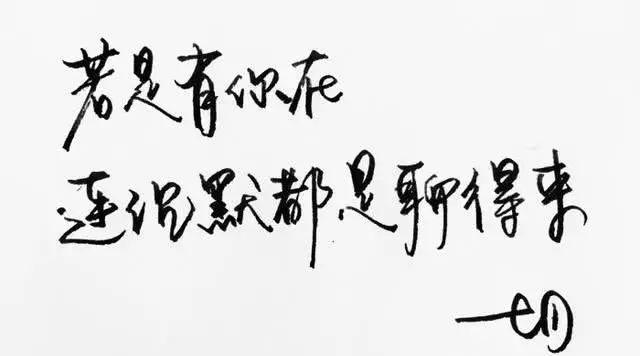 若是有你在
连沉默都是聊得来
一切